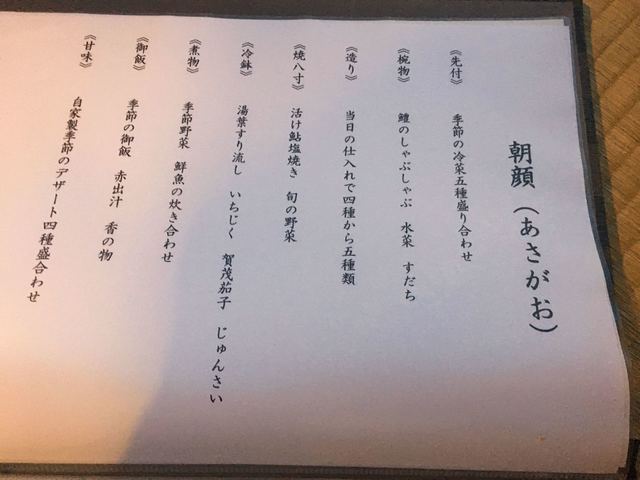 朝顔（あさがお）
《先付》　季節の冷菜五種盛り合わせ
《椀物》　鱧のしゃぶしゃぶ　水菜　すだち
《造り》　当日の仕入れで四種から五種類
《焼八寸》　活け鮎塩焼き　旬の野菜
《冷鉢》　湯葉すり流し　いちじく　賀茂茄子　じゅんさい
《煮物》　季節野菜　鮮魚の炊き合わせ
《御飯》　季節の御飯　赤出汁　香の物
《甘味》　自家製季節のデザート四種盛合わせ